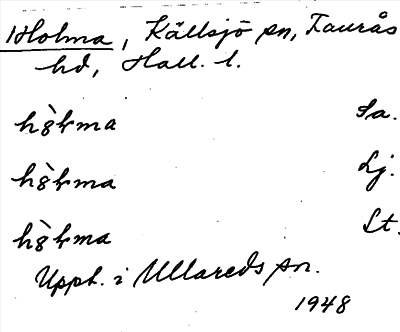 Holma, Källsjö sn, Faurås
hd, Hall. l.
hò̧lma Sa.
hò̧lma Lj.
hò̧lma Lt.
Uppt. i Ullareds sn.
1948